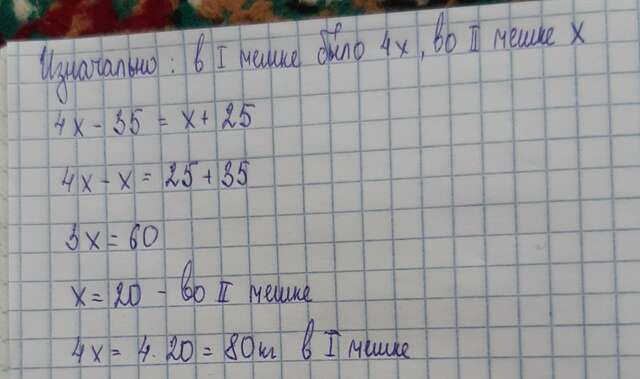 Изначально: в I мешке было 4x, во II мешке x
4x - 35 = x + 25
4x - x = 25 + 35
3x = 60
x = 20 - во II мешке
4x = 4 · 20 = 80 кг в I мешке